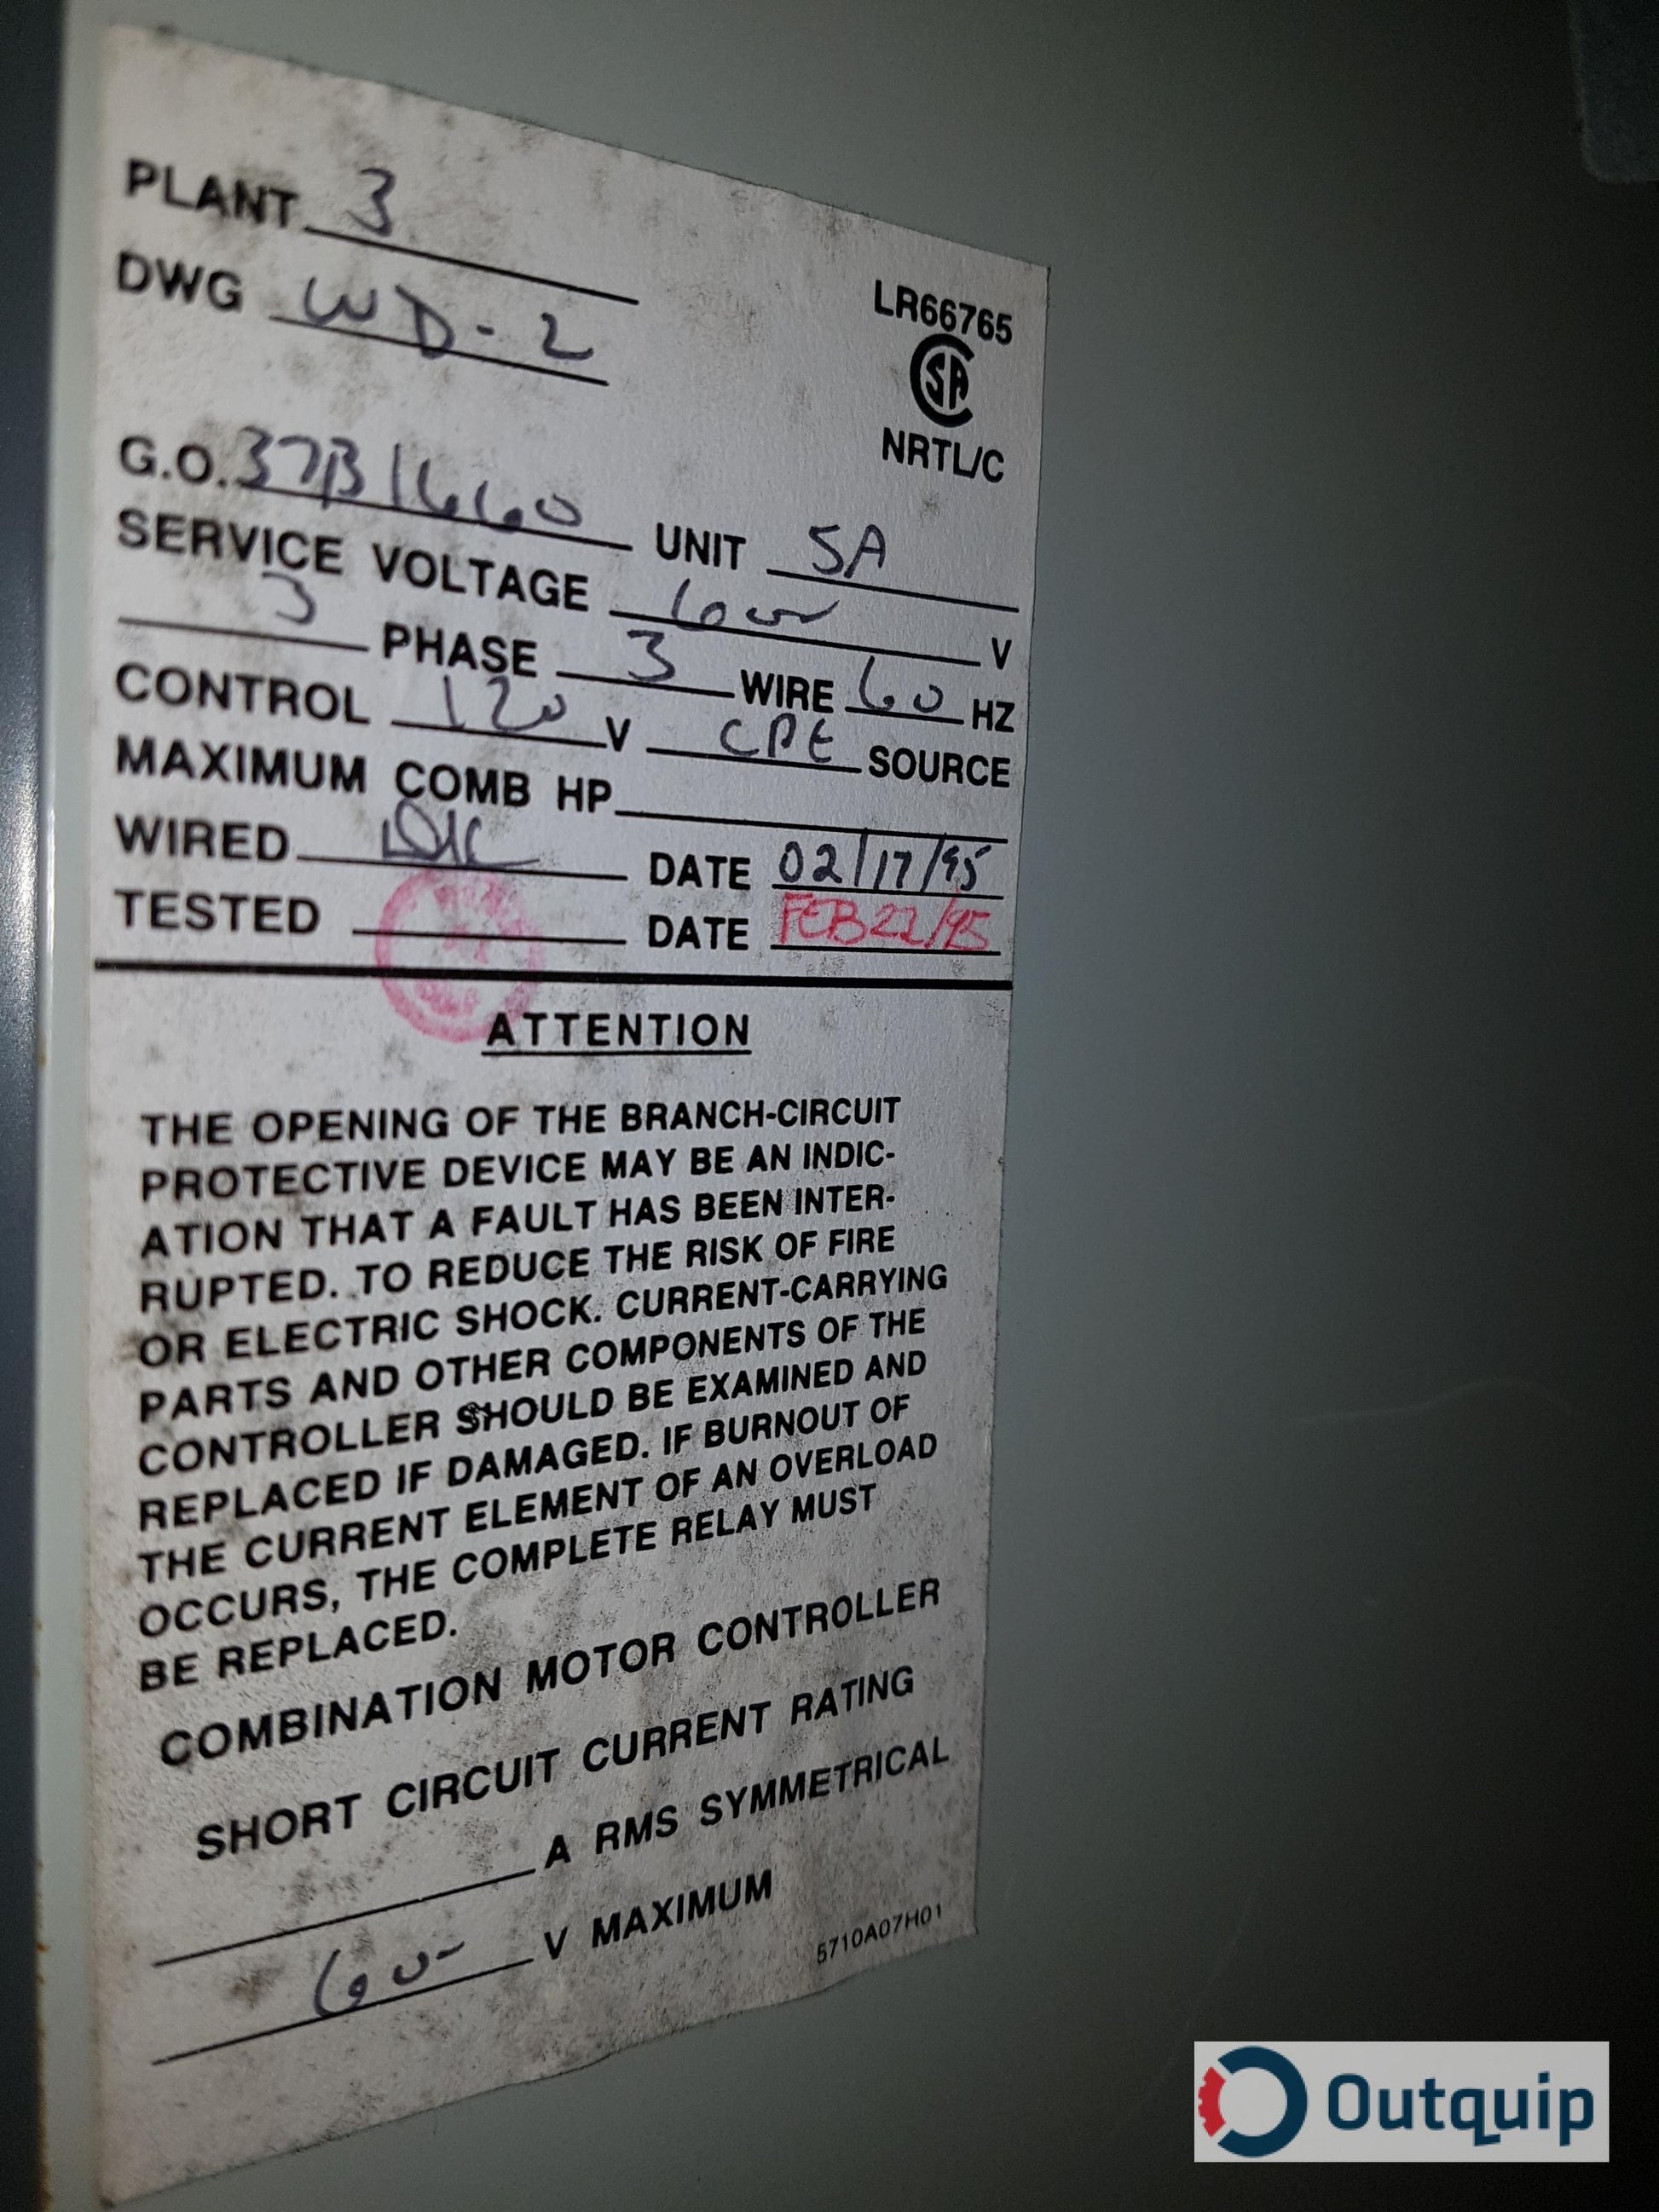 PLANT 3
DWG WD-2
LR66765
SA
NRTL/C
G.O. 37B1660 UNIT 5A
SERVICE VOLTAGE 600 V
3 PHASE 3 WIRE 60 HZ
CONTROL 120 V CPT SOURCE
MAXIMUM COMB HP
WIRED DATE 02/17/95
TESTED DATE FEB 22/95
ATTENTION
THE OPENING OF THE BRANCH-CIRCUIT
PROTECTIVE DEVICE MAY BE AN INDIC-
ATION THAT A FAULT HAS BEEN INTER-
RUPTED. TO REDUCE THE RISK OF FIRE
OR ELECTRIC SHOCK. CURRENT-CARRYING
PARTS AND OTHER COMPONENTS OF THE
CONTROLLER SHOULD BE EXAMINED AND
REPLACED IF DAMAGED. IF BURNOUT OF
THE CURRENT ELEMENT OF AN OVERLOAD
OCCURS, THE COMPLETE RELAY MUST
BE REPLACED.
COMBINATION MOTOR CONTROLLER
SHORT CIRCUIT CURRENT RATING
A RMS SYMMETRICAL
600 V MAXIMUM
5710A07H01
Outquip